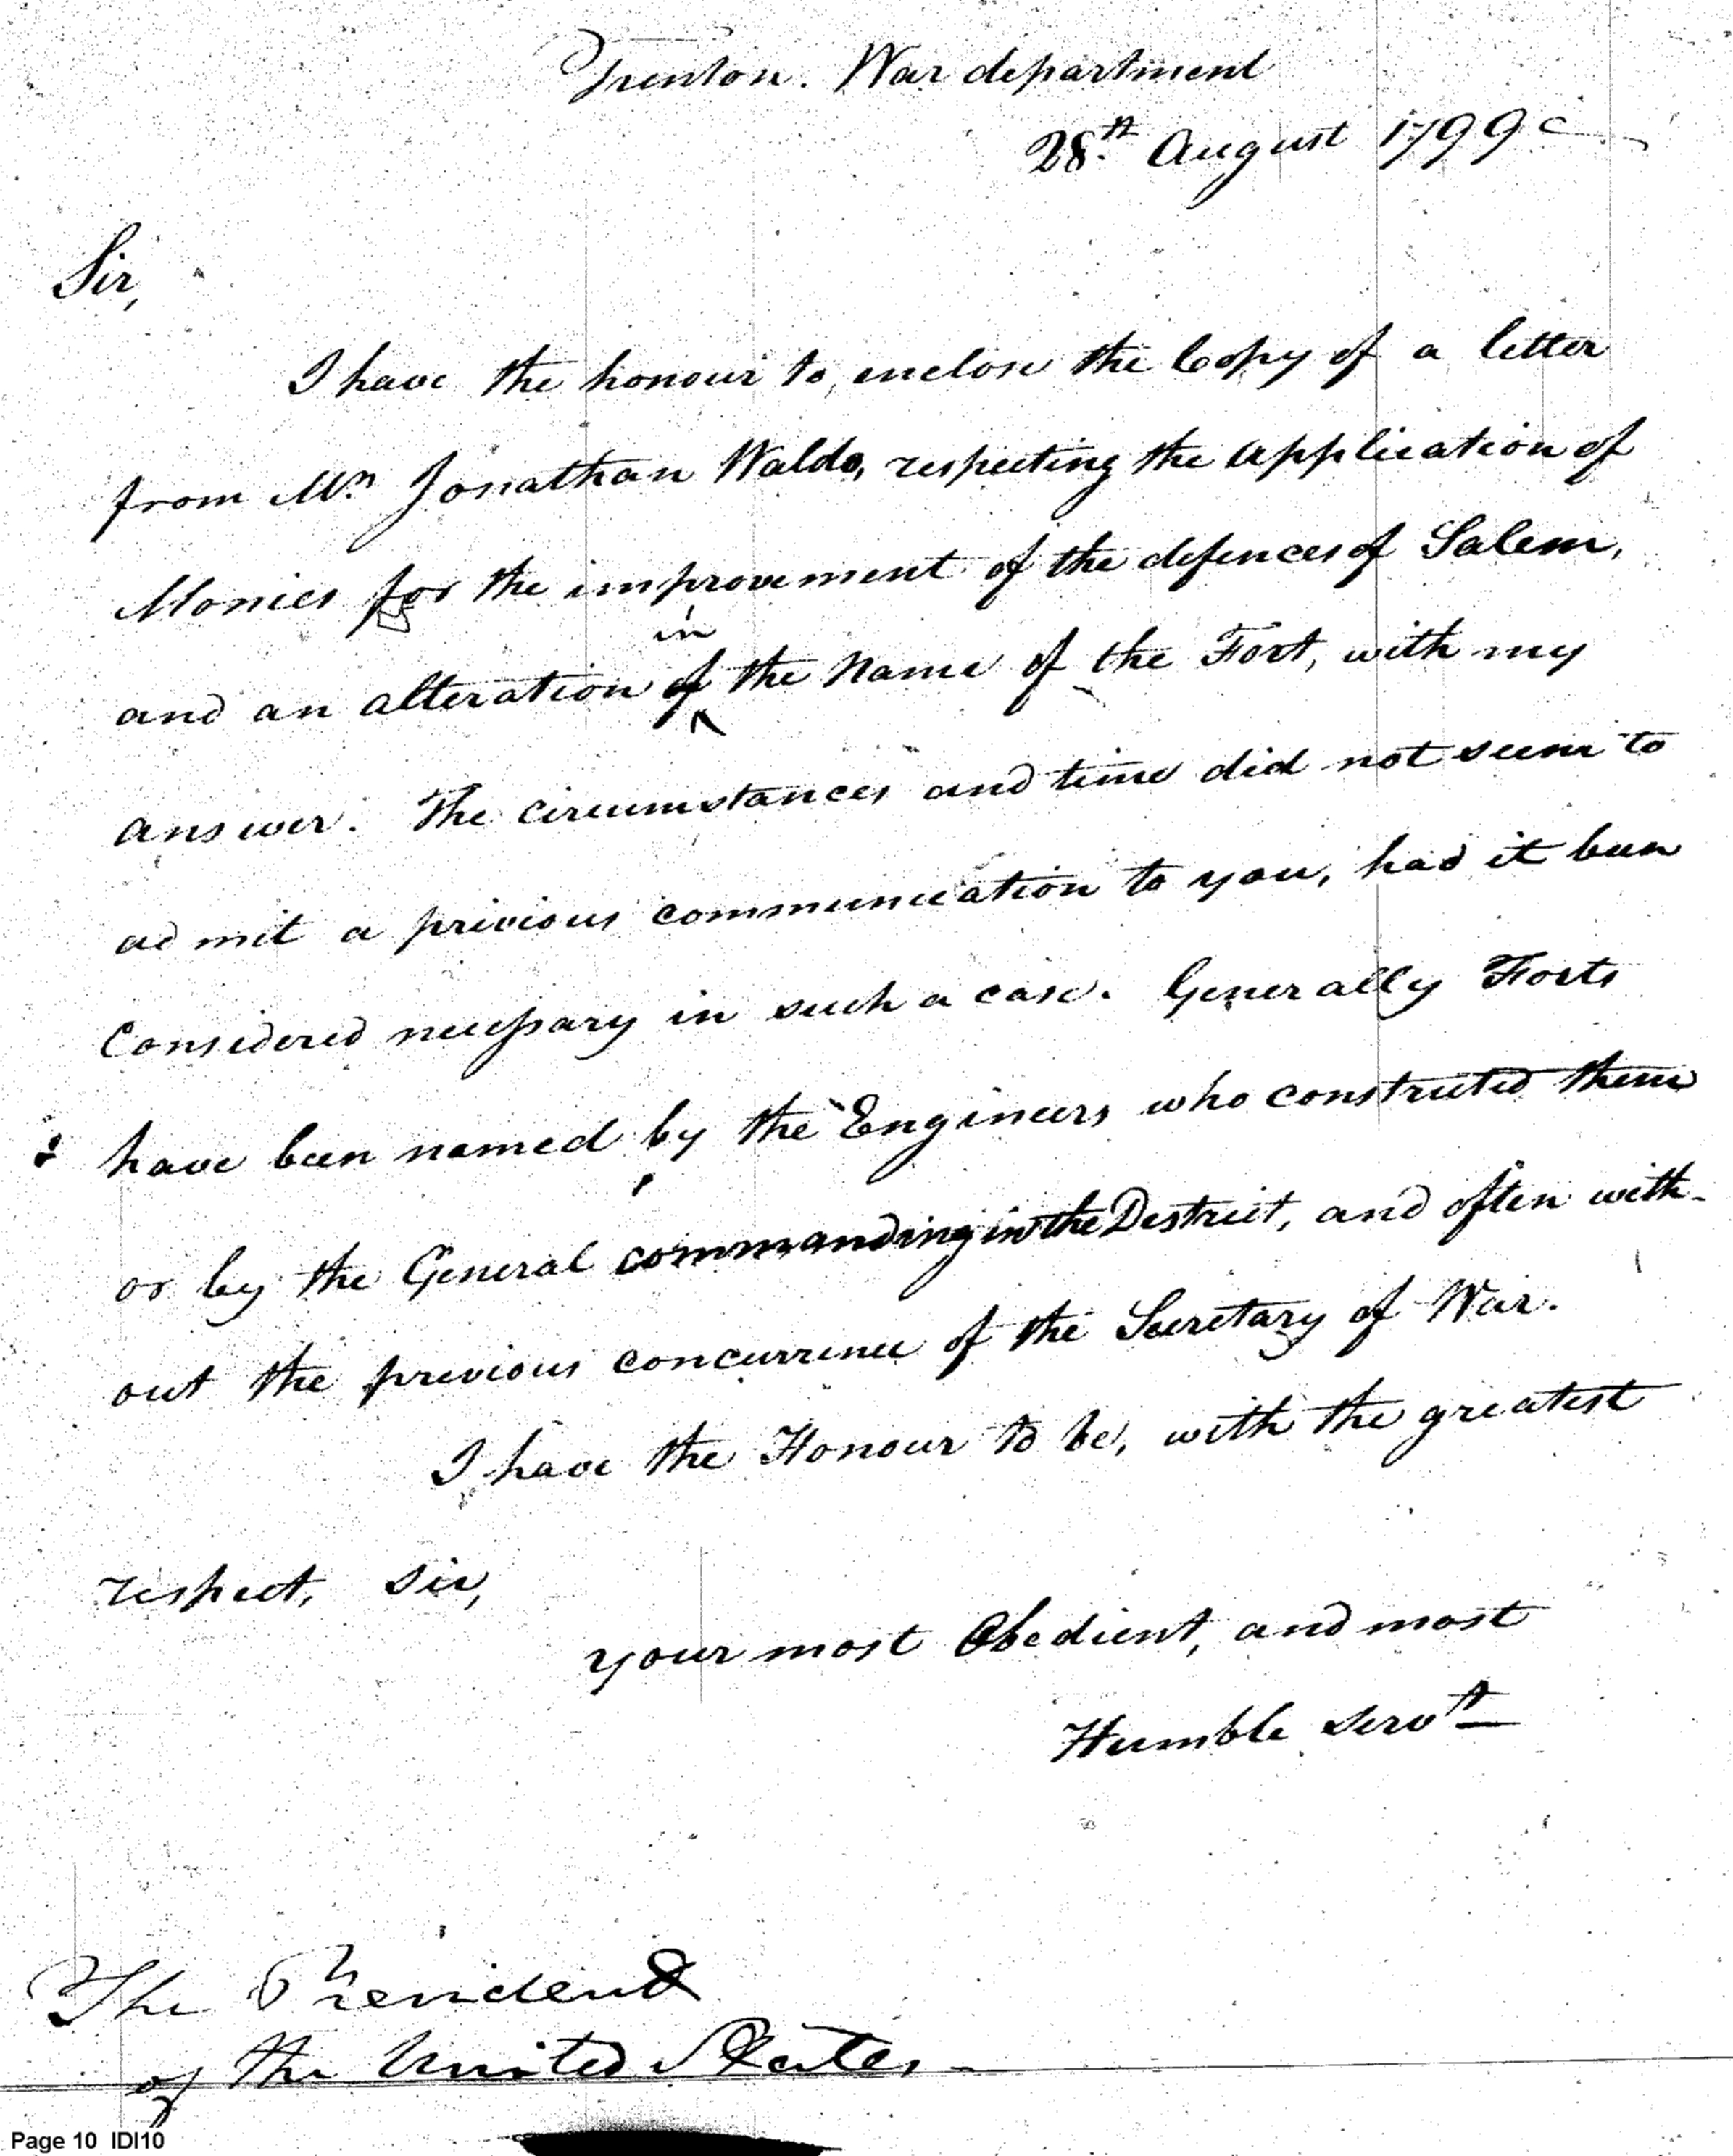 Trenton. War department
28th August 1799
Sir,
I have the honour to enclose the Copy of a letter
from Mr Jonathan Waldo, respecting the application of
Monies for the improvement of the defences of Salem,
in
and an alteration of the Name of the Fort, with my
answer. The circumstances and time did not seem to
admit a privious communication to you, had it been
Considered necessary in such a case. Generally Forts
have been named by the Engineers who constructed them
or by the General commanding in the District, and often with-
out the previous concurrence of the Secretary of War.
I have the Honour to be, with the greatest
respect, Sir,
your most Obedient, and most
Humble servt
The President
of the United States
Page 10 IDI10